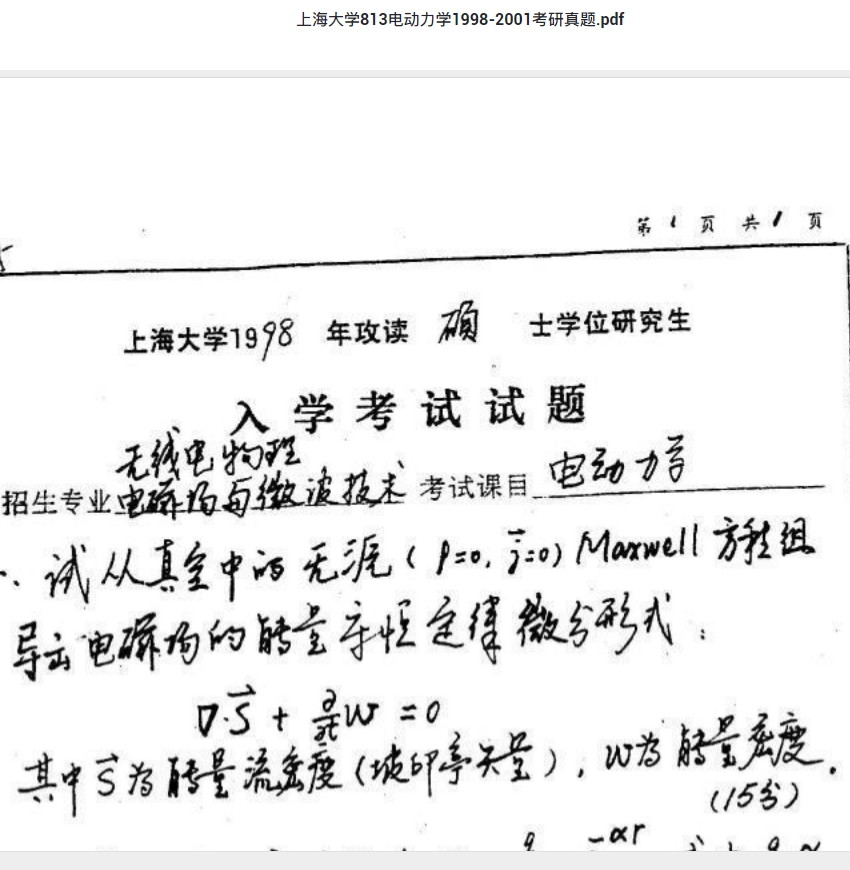 上海大学813电动力学1998-2001考研真题.pdf
第 1 页 共 1 页
上海大学1998 年攻读 硕 士学位研究生
入学考试试题
无线电物理
招生专业 电磁场与微波技术 考试课目 电动力学
一、试从真空中的无源(ρ=0, j⃗=0) Maxwell 方程组
导出电磁场的能量守恒定律微分形式:
∇·S⃗ + ∂/∂t W = 0
其中 S⃗ 为能量流密度(坡印亭矢量), W为能量密度.
(15分)
-αr